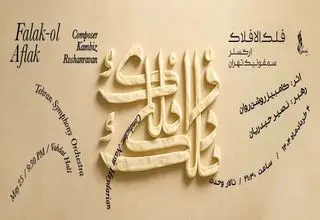 Falak-ol
Aflak
Composer
Kambiz
Roshanravan
Tehran Symphony Orchestra
Conductor: Nasir Heydarian
May 25 / 9:30 PM / Vahdat Hall
فلک‌الافلاک
ارکستر
سمفونیک تهران
اثر: کامبیز روشن‌روان
رهبر: نصیر حیدریان
ساعت ۲۱:۳۰ / تالار وحدت